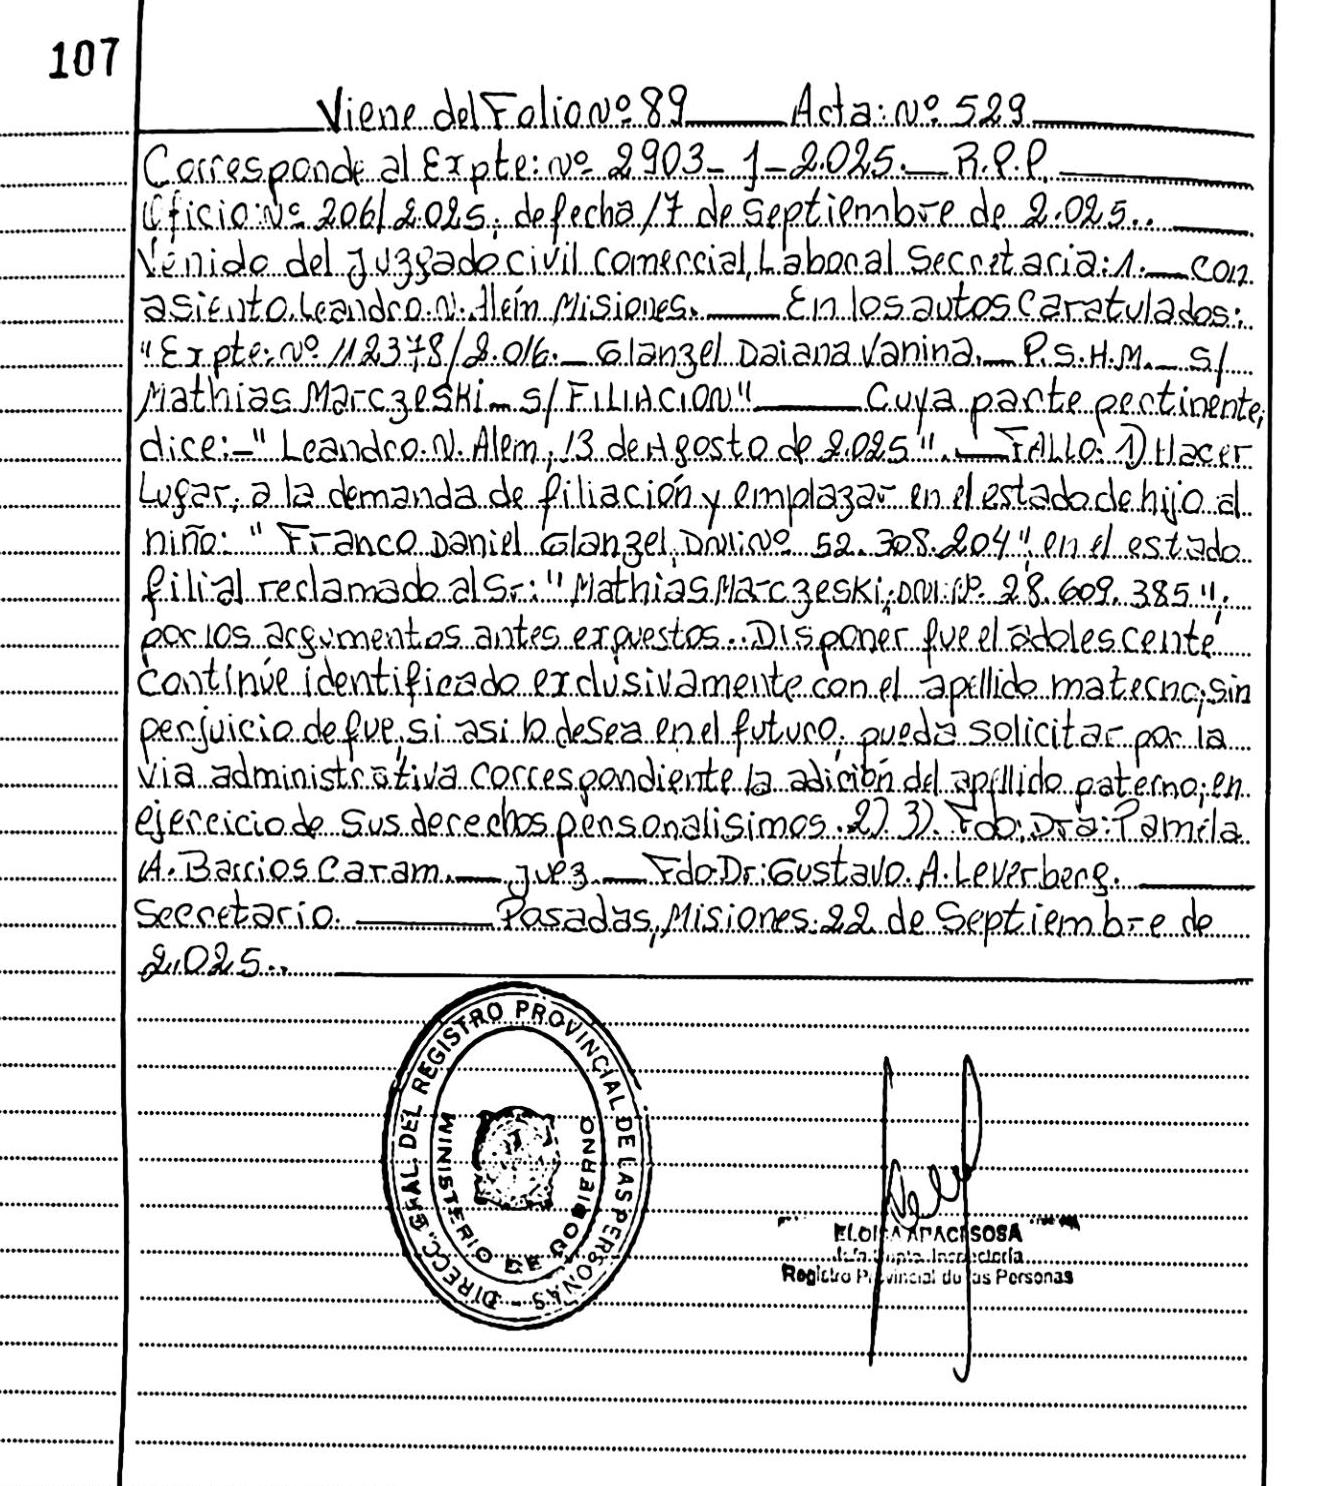 107
Viene del Folio Nº 89 Acta: Nº 529
Corresponde al Expte: Nº 2903-J-2.025. R.P.P.
Oficio: Nº 206/2.025, de fecha 17 de Septiembre de 2.025..
Venido del Juzgado Civil Comercial, Laboral Secretaria: 1. Con
asiento Leandro. N. Alem Misiones. En los autos Caratulados:
"Expte: Nº 112378/2.016. Glanzel Daiana Vanina. P.S.H.M. S/
Mathias Marczeski S/ FILIACION" Cuya parte pertinente,
dice: "Leandro. N. Alem, 13 de Agosto de 2.025". FALLO: 1) Hacer
Lugar, a la demanda de filiación y emplazar en el estado de hijo al
niño: "Franco Daniel Glanzel, DNI: Nº 52.308.204", en el estado
filial reclamado al Sr.: "Mathias Marczeski; DNI: Nº. 28.609.385",
por los argumentos antes expuestos.. Disponer que el adolescente
continúe identificado exclusivamente con el apellido materno; sin
perjuicio de que, si asi lo desea en el futuro, pueda solicitar por la
via administrativa correspondiente la adición del apellido paterno, en
ejercicio de sus derechos personalisimos. 2) 3). Fdo: Dra: Pamela
A. Barrios Caram. Juez. Fdo: Dr: Gustavo. A. Leverberg.
Secretario. Posadas, Misiones: 22 de Septiembre de
2.025..
DIRECC. GRAL. DEL REGISTRO PROVINCIAL DE LAS PERSONAS -
MINISTERIO DE GOBIERNO
SOSA
Registro Provincial de las Personas